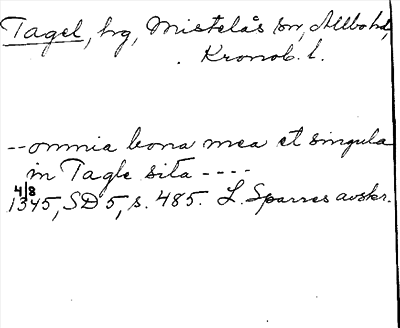 Tagel, hg, Mistelås sn, Allbo hd,
Kronob. l.
--omnia bona mea et singula
in Tagle sita ----
4/8
1345, SD 5, s. 485. L. Sparres avskr.